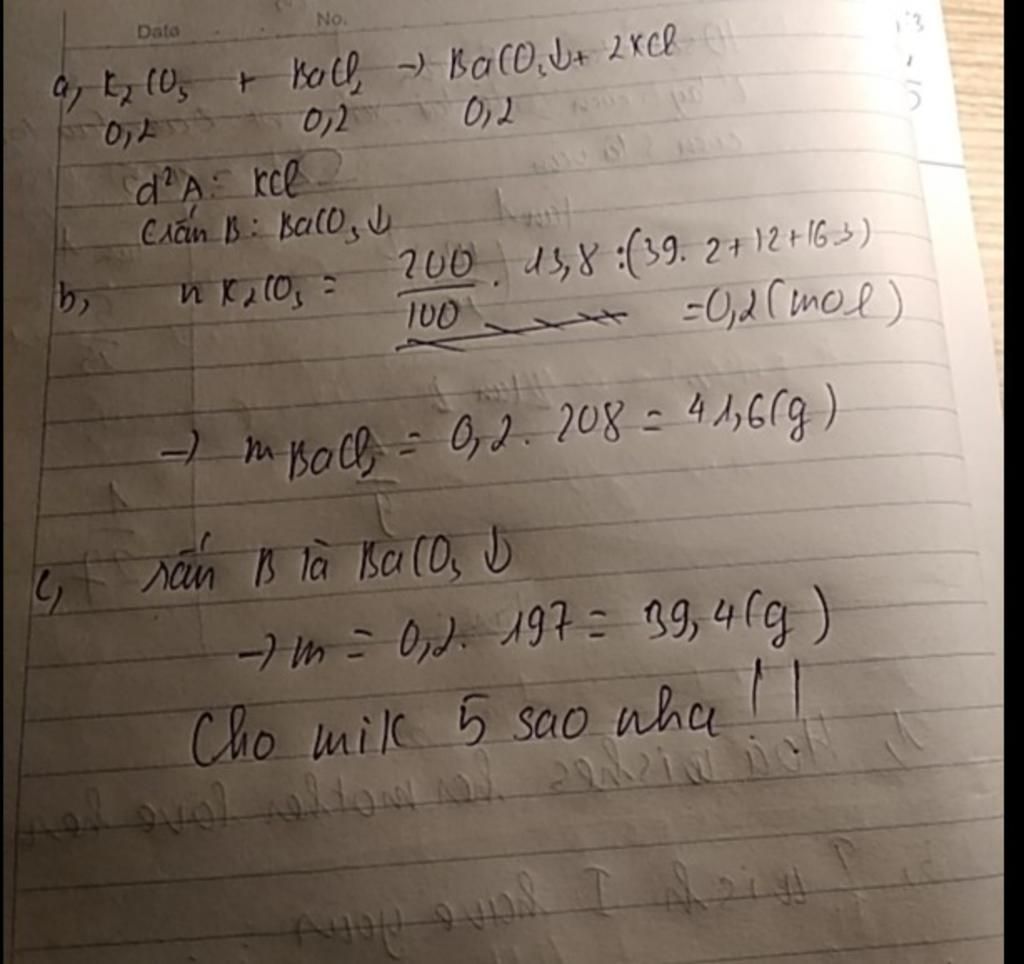 Data No.
a, K₂CO₃ + BaCl₂ → BaCO₃↓ + 2KCl
0,2 0,2 0,2
d² A: KCl
Crắn B: BaCO₃↓
b, n K₂CO₃ = 200/100 . 13,8 : (39. 2+12+16.3)
=0,2(mol)
→ m BaCl₂ = 0,2. 208 = 41,6(g)
c, rắn B là BaCO₃ ↓
→ m = 0,2. 197 = 39,4(g)
Cho mik 5 sao nha !!